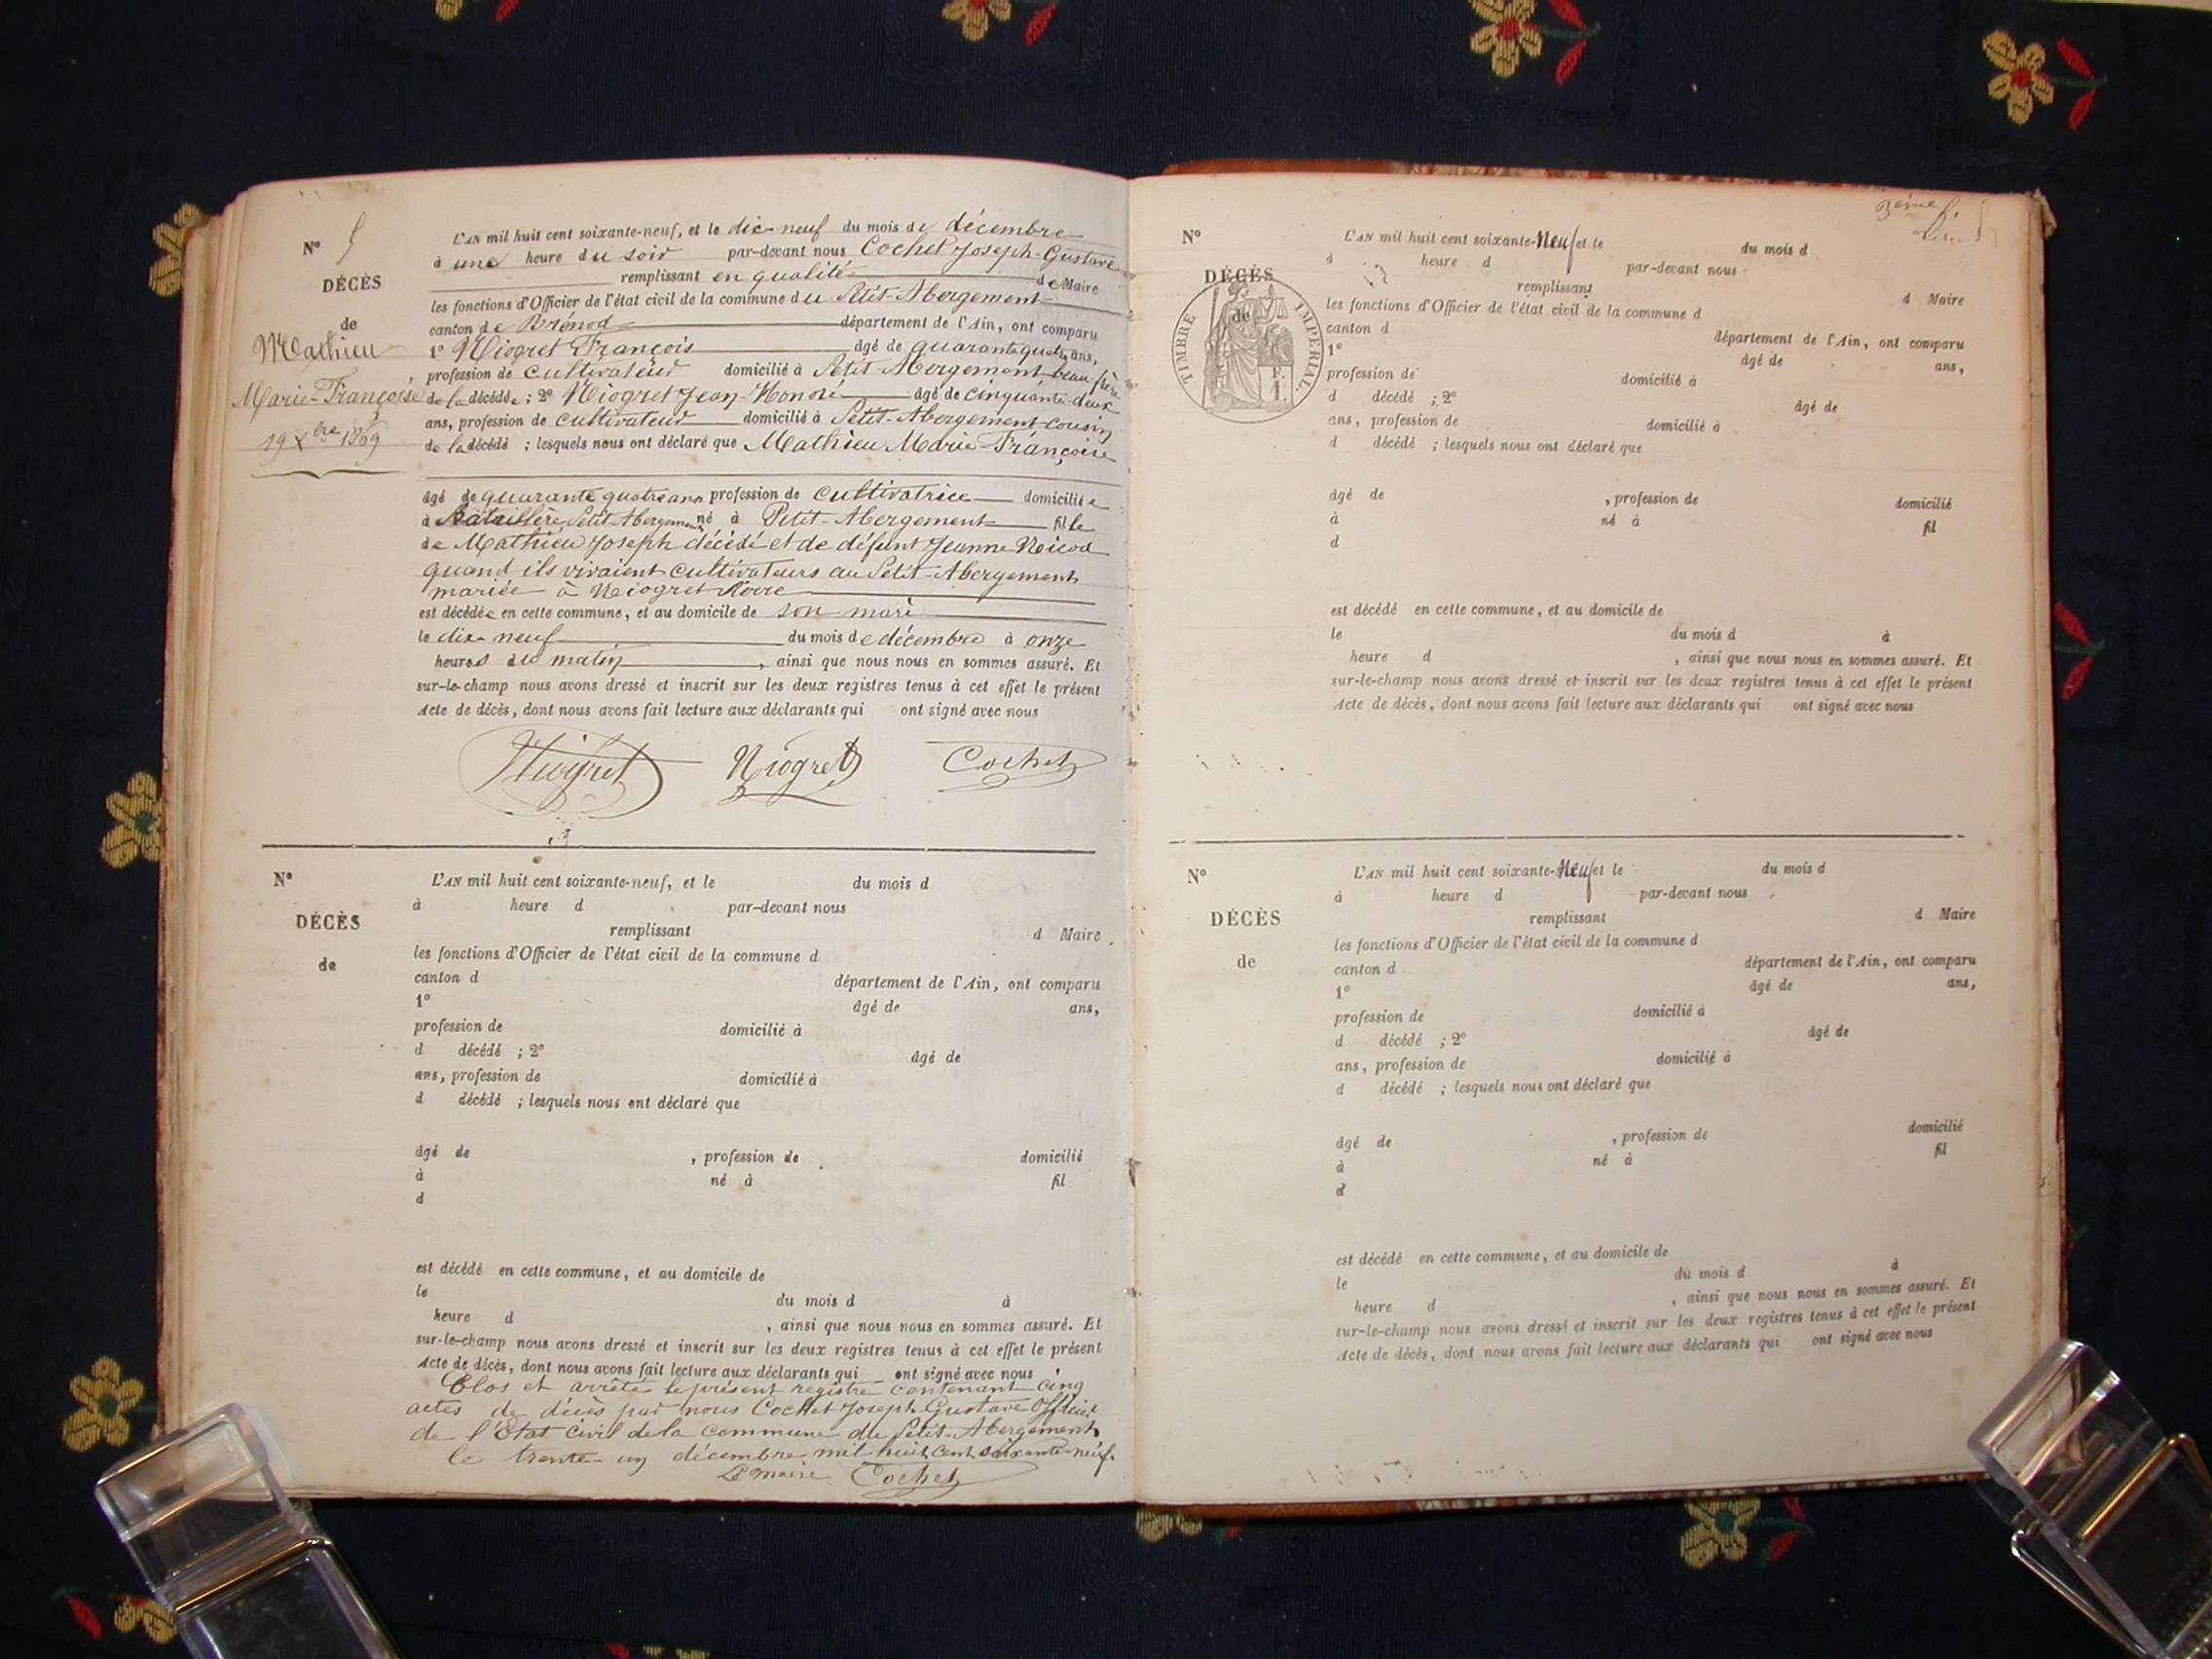 N° 5
DÉCÈS
de
Mathieu
Marie-Françoise
19 Xbre 1869
L'AN mil huit cent soixante-neuf, et le dix-neuf du mois de décembre
à une heure du soir par-devant nous Cochet Joseph-Gustave
remplissant en qualité de Maire
les fonctions d'Officier de l'état civil de la commune du Petit-Abergement
canton de Brénod département de l'Ain, ont comparu
1° Niogret François âgé de quarante quatre ans,
profession de cultivateur domicilié à Petit-Abergement beau frère
de la décédée ; 2° Niogret Jean-Honoré âgé de cinquante-deux
ans, profession de cultivateur domicilié à Petit-Abergement cousin
de la décédé ; lesquels nous ont déclaré que Mathieu Marie-Françoise
âgé de quarante quatre ans profession de cultivatrice domiciliée
à Petit-Abergement né à Petit-Abergement fille
de Mathieu Joseph décédé et de défunt Jeanne Nicod
quand ils vivaient cultivateurs au Petit-Abergement
mariée à Niogret
est décédée en cette commune, et au domicile de son mari
le dix-neuf du mois de décembre à onze
heures du matin, ainsi que nous nous en sommes assuré. Et
sur-le-champ nous avons dressé et inscrit sur les deux registres tenus à cet effet le présent
Acte de décès, dont nous avons fait lecture aux déclarants qui ont signé avec nous
Niogret Niogret Cochet
N°
DÉCÈS
de
L'AN mil huit cent soixante-neuf, et le du mois d
à heure d par-devant nous
remplissant d Maire
les fonctions d'Officier de l'état civil de la commune d
canton d département de l'Ain, ont comparu
1° âgé de ans,
profession de domicilié à
d décédé ; 2° âgé de
ans, profession de domicilié à
d décédé ; lesquels nous ont déclaré que
âgé de , profession de domicilié
à né à fil
d
est décédé en cette commune, et au domicile de
le du mois d à
heure d , ainsi que nous nous en sommes assuré. Et
sur-le-champ nous avons dressé et inscrit sur les deux registres tenus à cet effet le présent
Acte de décès, dont nous avons fait lecture aux déclarants qui ont signé avec nous
Clos et arrêté le présent registre contenant cinq
actes de décès par nous Cochet Joseph Gustave Officier
de l'Etat Civil de la commune du Petit-Abergement
le trente-un décembre mil huit cent soixante-neuf.
Le maire Cochet
N°
DÉCÈS
de
TIMBRE IMPÉRIAL.
1 F.
L'AN mil huit cent soixante-Neuf et le du mois d
à heure d par-devant nous
remplissant d Maire
les fonctions d'Officier de l'état civil de la commune d
canton d département de l'Ain, ont comparu
1° âgé de ans,
profession de domicilié à
d décédé ; 2° âgé de
ans, profession de domicilié à
d décédé ; lesquels nous ont déclaré que
âgé de , profession de domicilié
à né à fil
d
est décédé en cette commune, et au domicile de
le du mois d à
heure d , ainsi que nous nous en sommes assuré. Et
sur-le-champ nous avons dressé et inscrit sur les deux registres tenus à cet effet le présent
Acte de décès, dont nous avons fait lecture aux déclarants qui ont signé avec nous
N°
DÉCÈS
de
L'AN mil huit cent soixante-Neuf et le du mois d
à heure d par-devant nous
remplissant d Maire
les fonctions d'Officier de l'état civil de la commune d
canton d département de l'Ain, ont comparu
1° âgé de ans,
profession de domicilié à
d décédé ; 2° âgé de
ans, profession de domicilié à
d décédé ; lesquels nous ont déclaré que
âgé de , profession de domicilié
à né à fil
d
est décédé en cette commune, et au domicile de
le du mois d à
heure d , ainsi que nous nous en sommes assuré. Et
sur-le-champ nous avons dressé et inscrit sur les deux registres tenus à cet effet le présent
Acte de décès, dont nous avons fait lecture aux déclarants qui ont signé avec nous